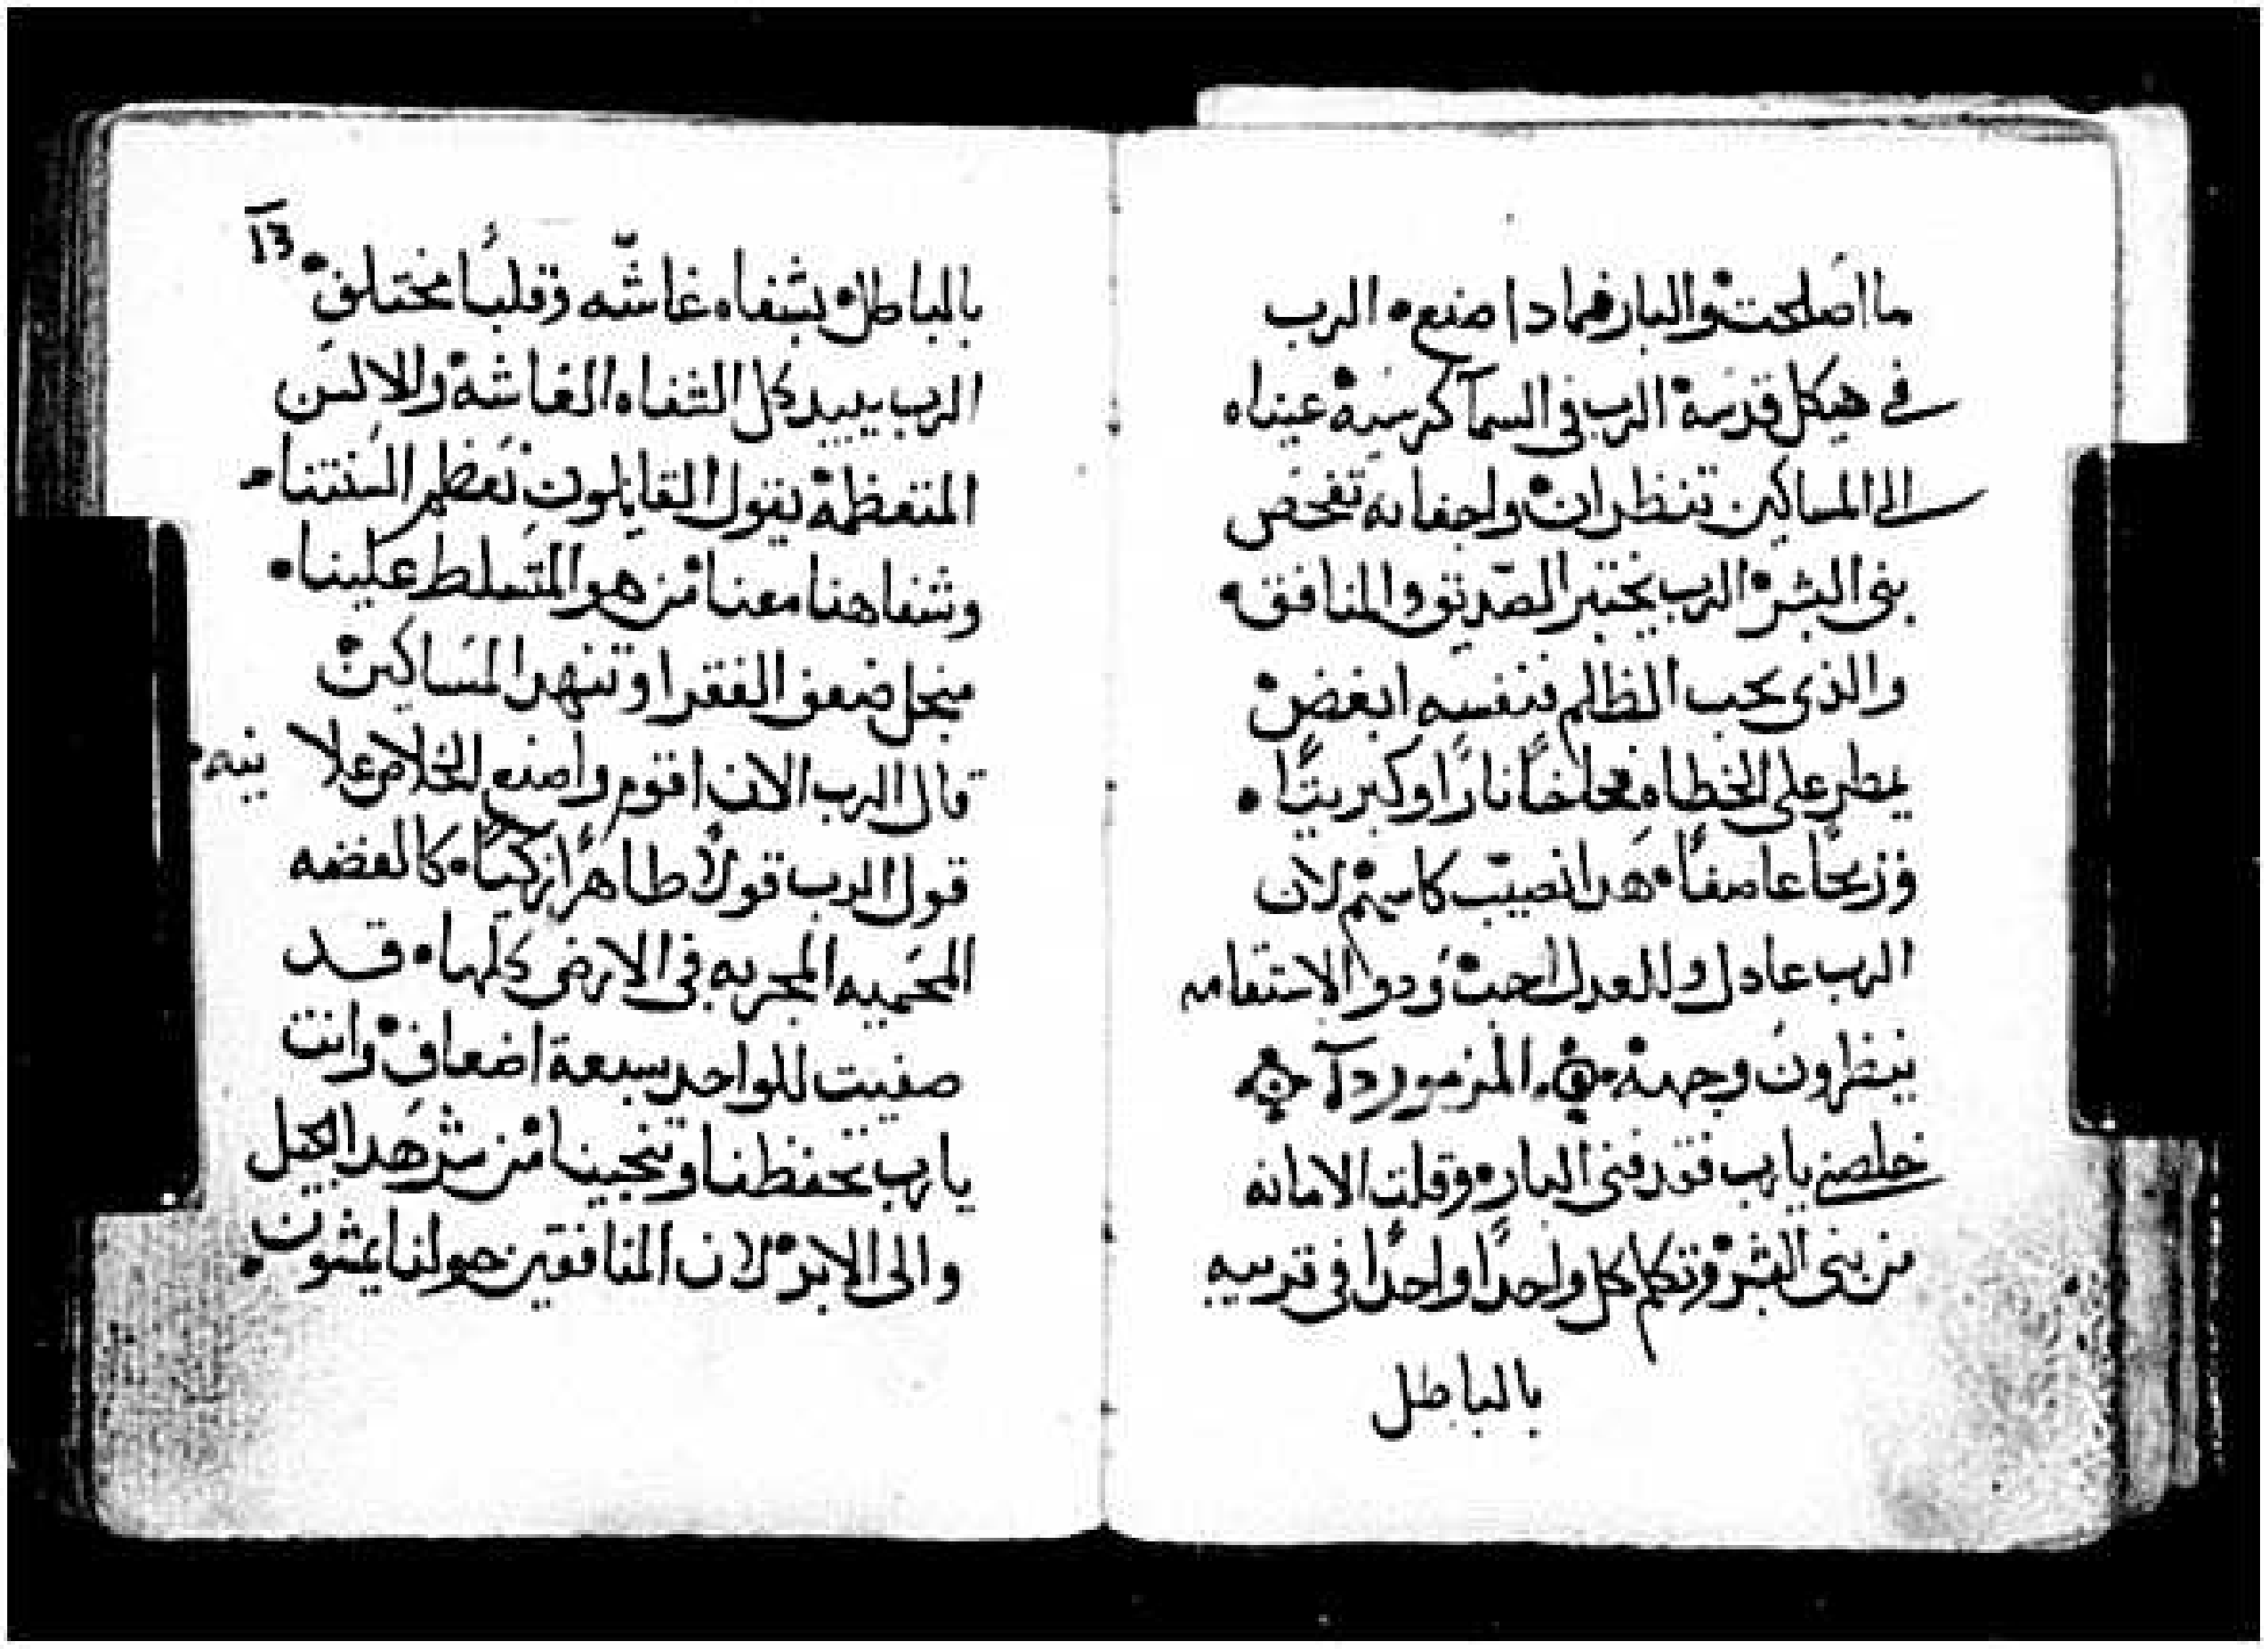 ما اصلحت والبار فماذا صنع الرب
في هيكل قدسه الرب في السما كرسيه عيناه
الى المساكين تنظران واجفانه تفحص
بنى البشر الرب يختبر الصديق والمنافق
والذى يحب الظلم فنفسه ابغض
يمطر على الخطاه فخاخا نارا وكبريتا
وريحا عاصفا هدا نصيب كاسهم لان
الرب عادل وللعدل احب ودو الاستقامه
ينظرون وجهه المزمور
خلصني يا رب فقد فنى البار وقلت الامانه
من بنى البشر وتكلم كل واحدا واحدا في قريبه
بالباطل
بالباطل بشفاه غاشه وقلبا مختلف
الرب يبيد كل الشفاه الغاشه والالسن
المتعظمه يقول القايلون نعظم السنتنا
وشفاهنا معنا من هو المتسلط علينا
منجل ضعف الفقرا وتنهد المساكين
قال الرب الان اقوم واصنع الخلاص علا نيه
قول الرب قولا طاهرا زكيا كالفضه
المحميه المجربه في الارض كلها قد
صفيت للواحد سبعة اضعاف وانت
يا رب تحفظنا وتنجينا من شر هدا الجيل
والى الابد لان المنافقين حولنا يمشون